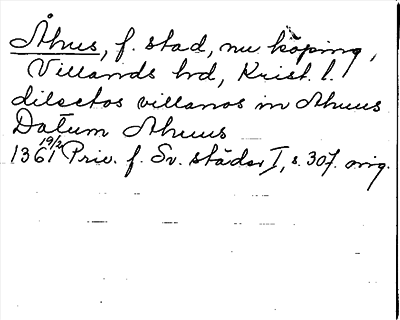 Åhus, f. stad, nu köping,
Villands hd, Krist. l.
dilectos villanos in Ahuus
Datum Ahuus
1361 19/2 Priv. f. Sv. städer I, s. 307. orig.